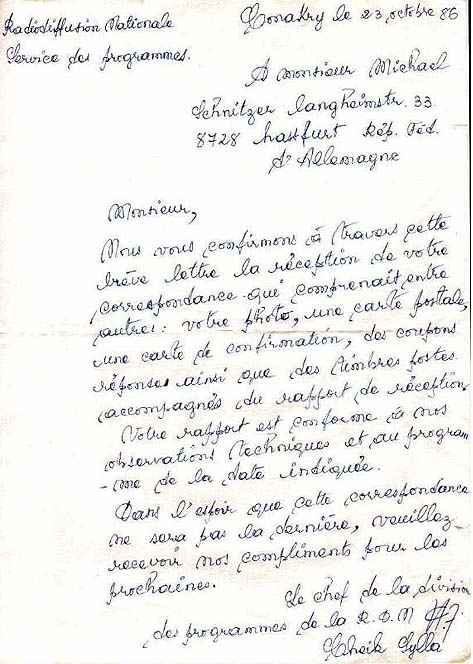 Radiodiffusion Nationale
Service des programmes.
Conakry le 23 octobre 86
A monsieur Michael
Schnitzer langheimstr. 33
8728 hastfurt Rép. Féd.
d'Allemagne
Monsieur,
Nous vous confirmons à travers cette
brève lettre la réception de votre
correspondance qui comprenait entre
autres: votre photo, une carte postale,
une carte de confirmation, des coupons
réponses ainsi que des timbres postes
accompagnés du rapport de réception.
Votre rapport est conforme à nos
observations techniques et au program
-me de la date indiquée.
Dans l'espoir que cette correspondance
ne sera pas la dernière, veuillez-
recevoir nos compliments pour les
prochaines.
Le chef de la division
des programmes de la R.D.N
Cheik Sylla